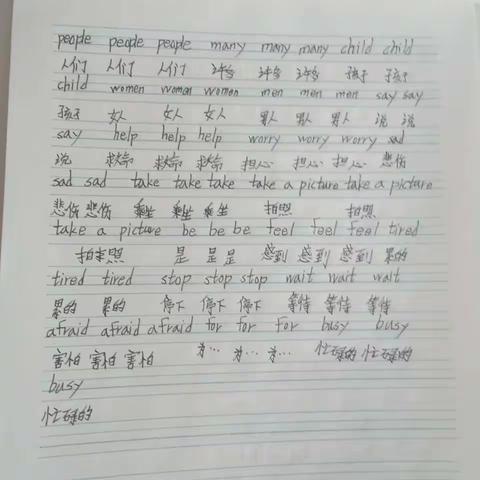 people people people many many many child child
人们 人们 人们 许多 许多 许多 孩子 孩子
child women women women men men men say say
孩子 女人 女人 女人 男人 男人 男人 说 说
say help help help worry worry worry sad
说 救命 救命 救命 担心 担心 担心 悲伤
sad sad take take take take a picture take a picture
悲伤 悲伤 乘坐 乘坐 乘坐 拍照 拍照
take a picture be be be feel feel feel tired
拍照 是 是 是 感到 感到 感到 累的
tired tired stop stop stop wait wait wait
累的 累的 停下 停下 停下 等待 等待 等待
afraid afraid afraid for for for busy busy
害怕 害怕 害怕 为… 为… 为… 忙碌的 忙碌的
busy
忙碌的